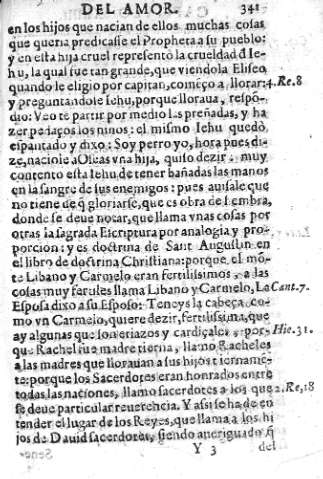 DEL AMOR. 341
en los hijos que nacian de ellos muchas cosas
que queria predicasse el Propheta a su pueblo:
y en esta hija cruel representò la crueldad d̃ Ie-
hu, la qual fue tan grande, que viendola Eliseo
quando le eligio por capitan, comẽço a llorar: 4. Re. 8
y preguntandole Iehu, porque lloraua, respõ-
dio: Veo te partir por medio las preñadas, y ha
zer pedaços los niños: el mismo Iehu quedò
espantado y dixo: Soy perro yo, hora pues di-
ze, naciole a Oseas vna hija, quiso dezir: muy
contento esta Iehu, de tener bañadas las manos
en la sangre de sus enemigos: pues auisale que
no tiene de q̃ gloriarse, que es obra de hembra,
donde se deue notar, que llama vnas cosas por
otras la sagrada Escriptura por analogia y pro-
porcion: y es doctrina de Sant Augustin en
el libro de doctrina Christiana: porque el mõ-
te Libano y Carmelo eran fertilissimos, a las
cosas muy fertiles llama Libano y Carmelo, La Cant. 7.
Esposa dixo a su Esposo: Teneys la cabeça co-
mo vn Carmelo, quiere dezir, fertilissima, que
ay algunas que son eriazos y cardiçales, por- Hie. 31.
que Rachel fue madre tierna, llamò Racheles
a las madres que llorauan a sus hijos tiername-
te: porque los Sacerdotes eran honrados entre
todas las naciones, llamo sacerdotes a los que 2. Re, 18
se deue particular reuerencia. Y assi se ha de en
tender el lugar de los Reyes, que llama a los hi
jos de Dauid sacerdotes, siendo aueriguado q̃
Y 3 del